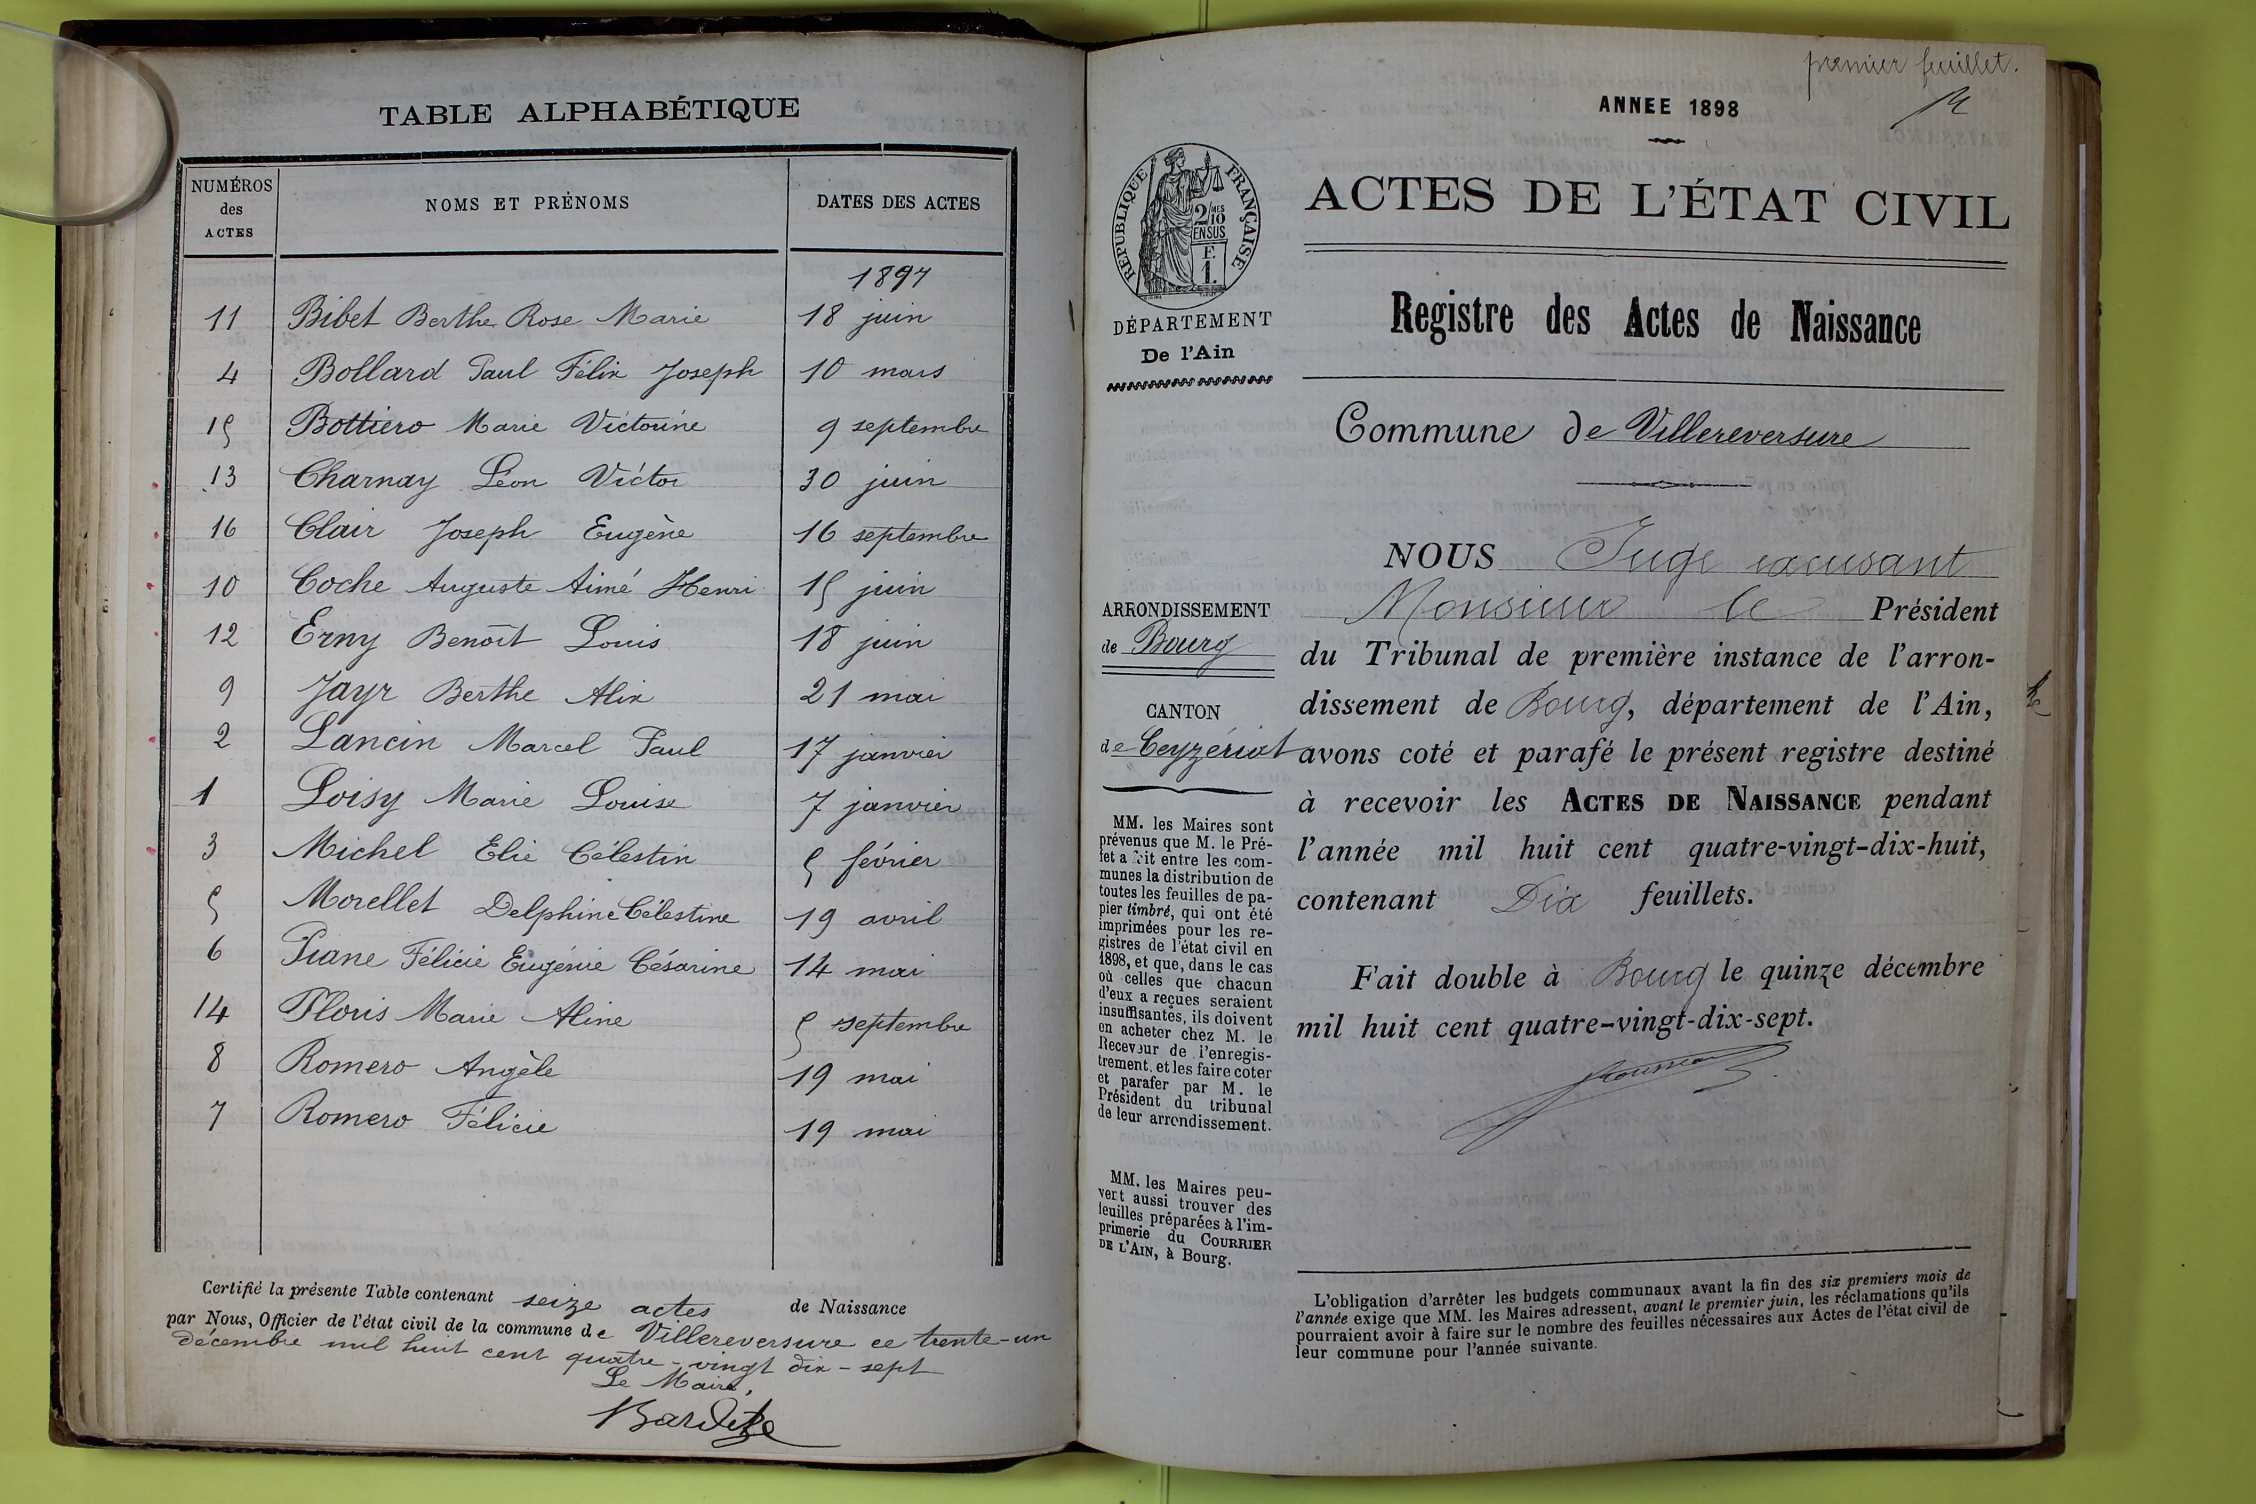 TABLE ALPHABÉTIQUE
NUMÉROS des ACTES NOMS ET PRÉNOMS DATES DES ACTES
1897
11 Bibet Berthe Rose Marie 18 juin
4 Bollard Paul Félix Joseph 10 mars
15 Bottiero Marie Victorine 9 septembre
13 Charnay Léon Victor 30 juin
16 Clair Joseph Eugène 16 septembre
10 Coche Auguste Aimé Henri 15 juin
12 Erny Benoît Louis 18 juin
9 Jayr Berthe Alix 21 mai
2 Lancin Marcel Paul 17 janvier
1 Loisy Marie Louise 7 janvier
3 Michel Elie Célestin 5 février
5 Morellet Delphine Célestine 19 avril
6 Piane Félicie Eugénie Césarine 14 mai
14 Floris Marie Aline 5 septembre
8 Romero Angèle 19 mai
7 Romero Félicie 19 mai
Certifié la présente Table contenant seize actes de Naissance
par Nous, Officier de l'état civil de la commune de Villereversure ce trente-un
décembre mil huit cent quatre-vingt dix-sept
Le Maire,
premier feuillet.
ANNEE 1898
ACTES DE L'ÉTAT CIVIL
REPUBLIQUE FRANÇAISE
2/10 MES
EN SUS
F.
1.
DÉPARTEMENT
De l'Ain
Registre des Actes de Naissance
Commune de Villereversure
ARRONDISSEMENT
de Bourg
CANTON
de Ceyzériat
MM. les Maires sont
prévenus que M. le Pré-
fet a fait entre les com-
munes la distribution de
toutes les feuilles de pa-
pier timbré, qui ont été
imprimées pour les re-
gistres de l'état civil en
1898, et que, dans le cas
où celles que chacun
d'eux a reçues seraient
insuffisantes, ils doivent
en acheter chez M. le
Receveur de l'enregis-
trement, et les faire coter
et parafer par M. le
Président du tribunal
de leur arrondissement.
MM. les Maires peu-
vert aussi trouver des
feuilles préparées à l'im-
primerie du COURRIER
DE L'AIN, à Bourg.
NOUS Juge excusant
Monsieur le Président
du Tribunal de première instance de l'arron-
dissement de Bourg, département de l'Ain,
avons coté et parafé le présent registre destiné
à recevoir les ACTES DE NAISSANCE pendant
l'année mil huit cent quatre-vingt-dix-huit,
contenant Dix feuillets.
Fait double à Bourg le quinze décembre
mil huit cent quatre-vingt-dix-sept.
L'obligation d'arrêter les budgets communaux avant la fin des six premiers mois de
l'année exige que MM. les Maires adressent, avant le premier juin, les réclamations qu'ils
pourraient avoir à faire sur le nombre des feuilles nécessaires aux Actes de l'état civil de
leur commune pour l'année suivante.